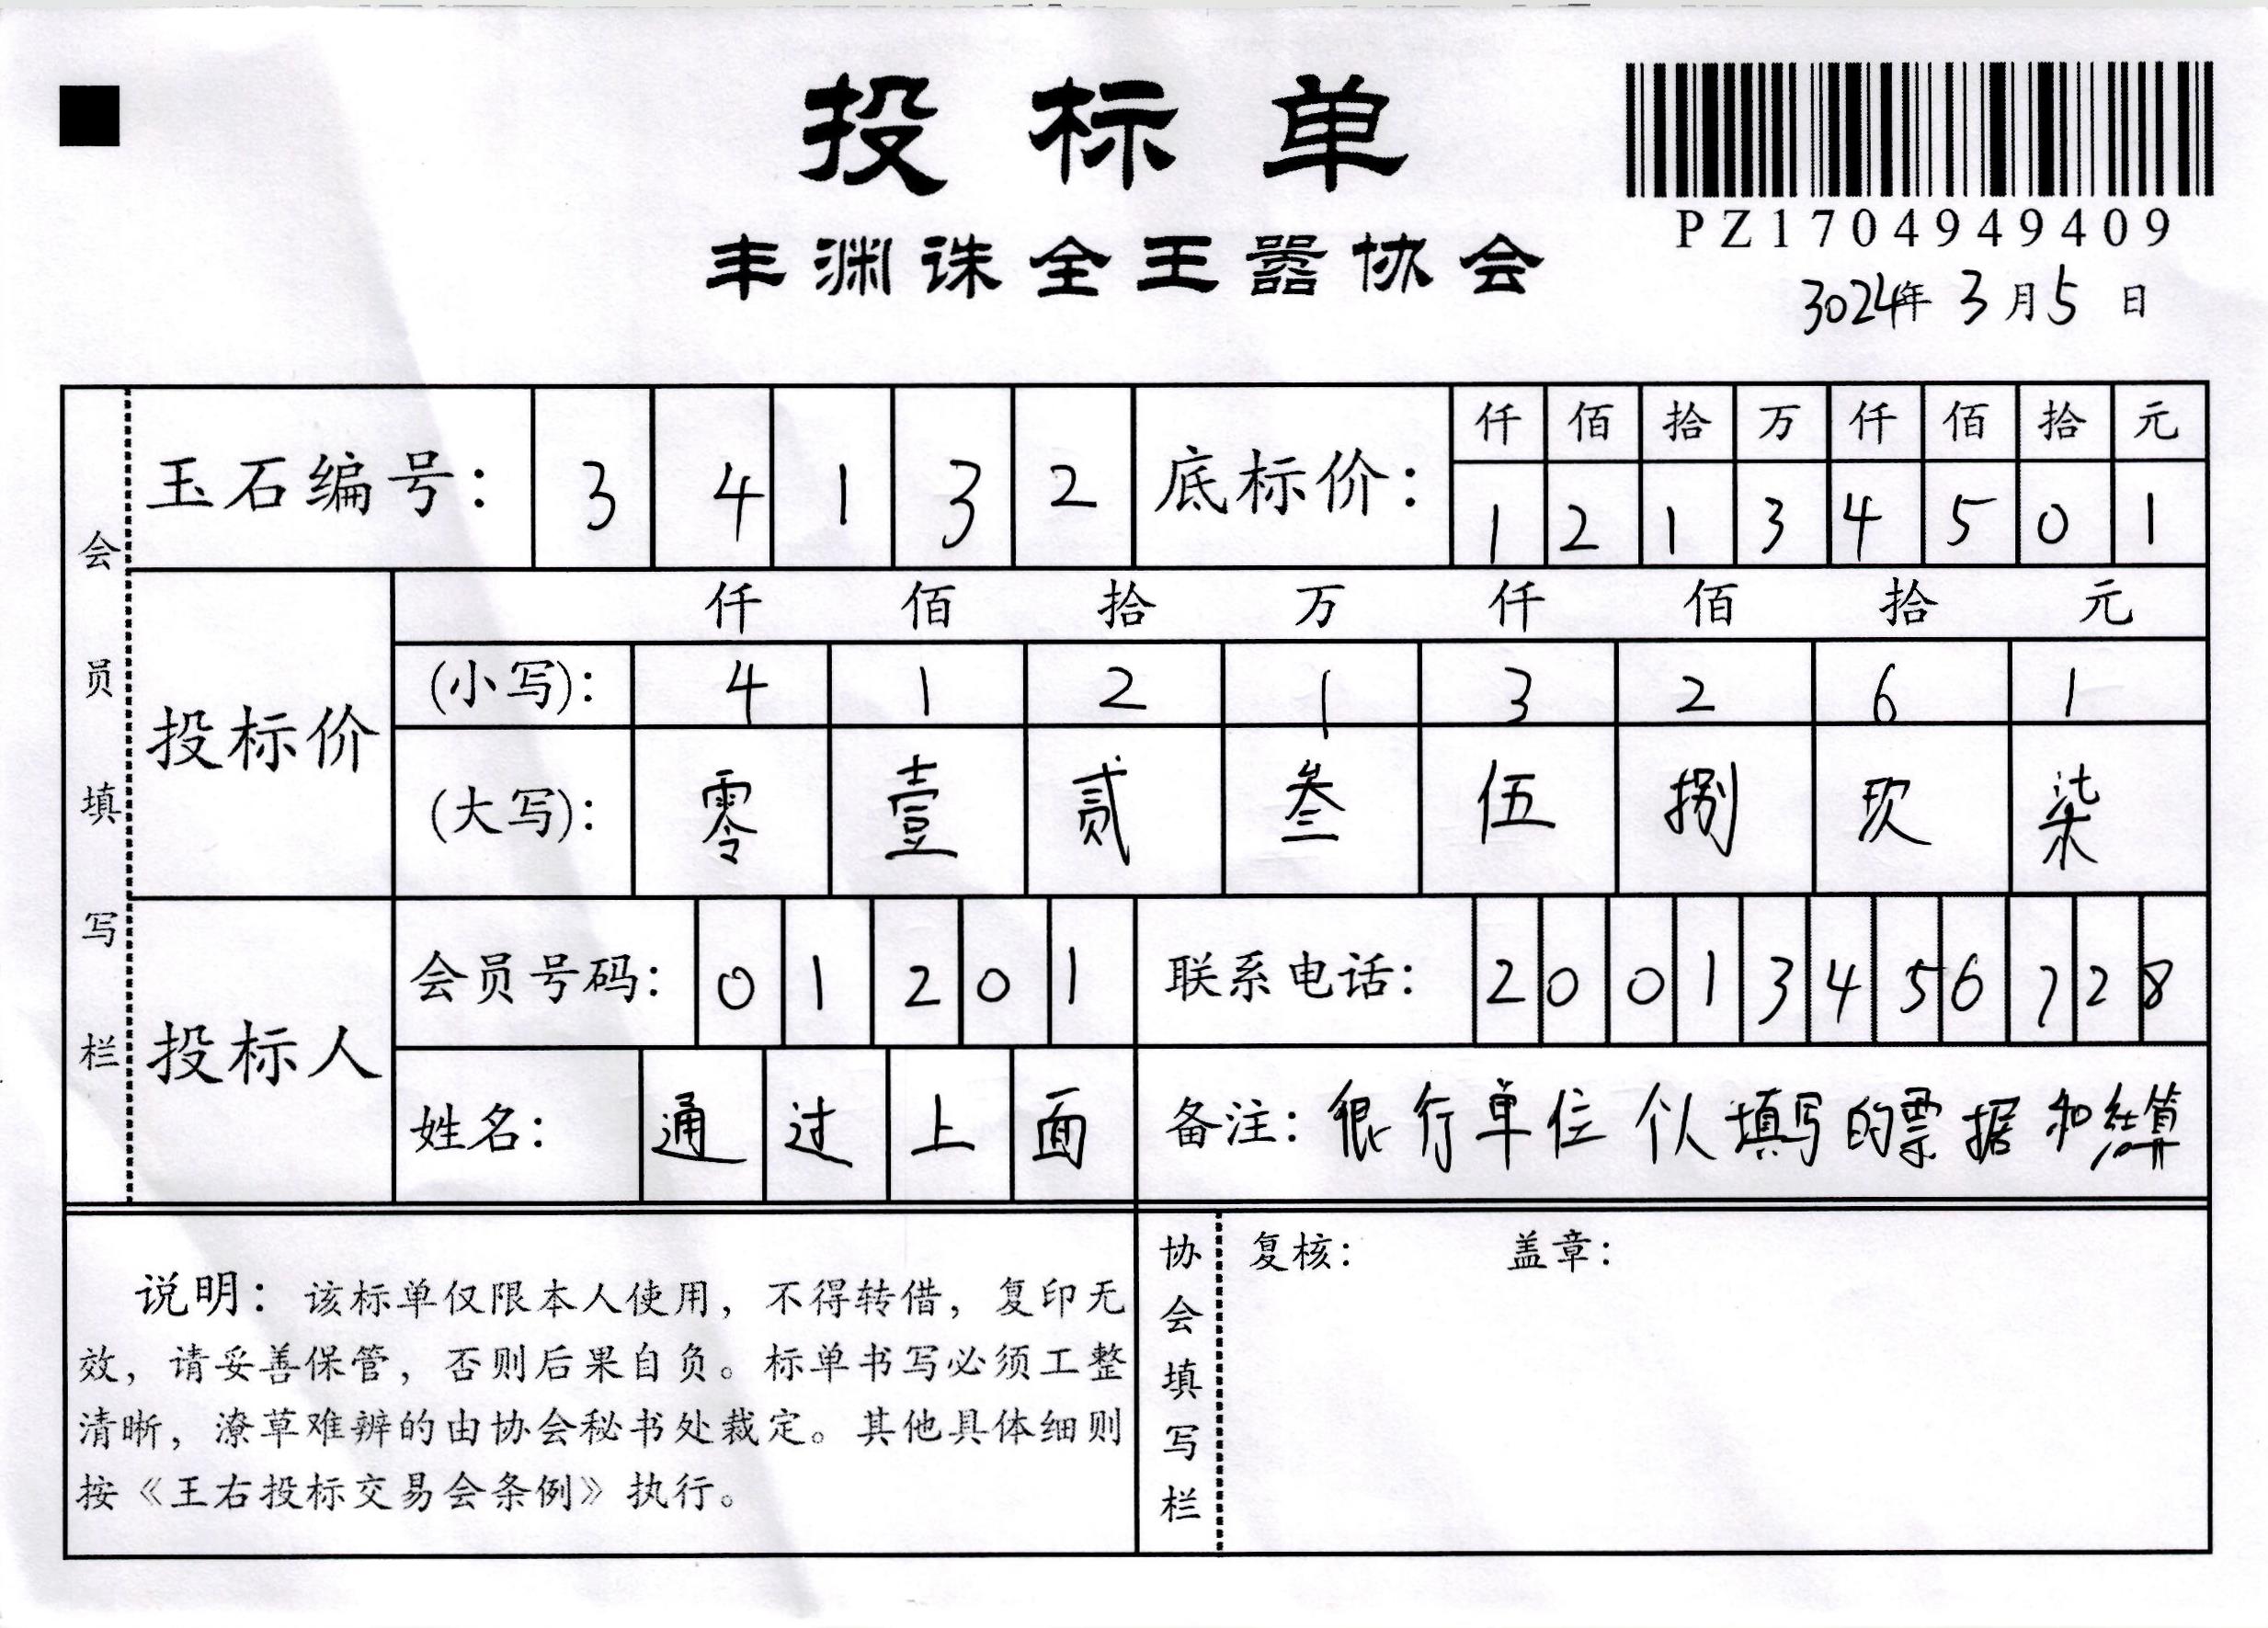 投标单
PZ1704949409
丰渊诛全王嚣协会
3024年3月5日
会员填写栏
玉石编号：34132
底标价：
仟佰拾万仟佰拾元
12134501
投标价
仟佰拾万仟佰拾元
(小写)：41213261
(大写)：零壹贰叁伍捌玖柒
投标人
会员号码：01201
联系电话：20013456728
姓名：通过上面
备注：银行单位个人填写的票据和结算
说明：该标单仅限本人使用，不得转借，复印无
效，请妥善保管，否则后果自负。标单书写必须工整
清晰，潦草难辨的由协会秘书处裁定。其他具体细则
按《王右投标交易会条例》执行。
协会填写栏
复核：
盖章：